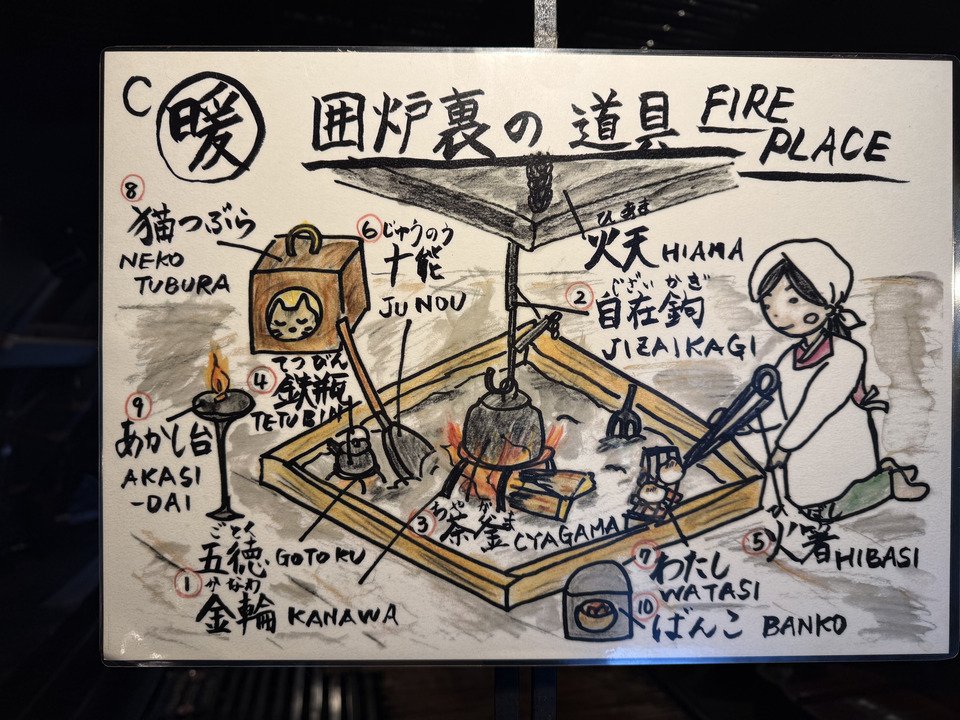 C 暖 囲炉裏の道具 FIRE
PLACE
⑧
猫つぶら
NEKO
TUBURA
⑥ じゅうのう
十能
JUNOU
ひあま
火天 HIAMA
② じざいかぎ
自在鉤
JIZAIKAGI
てつびん
④ 鉄瓶
TETUBIN
⑨
あかし台
AKASI
-DAI
ごとく
五徳 GOTOKU
① かなわ
金輪 KANAWA
ちゃがま
③ 茶釜 CYAGAMA
⑤ 火箸 HIBASI
⑦ わたし
WATASI
⑩ ばんこ BANKO